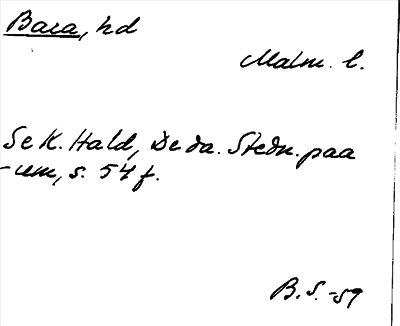 Bara, hd
Malm. l.
Se K. Hald, De da. Stedn. paa
-um, s. 54 f.
B.S.-59